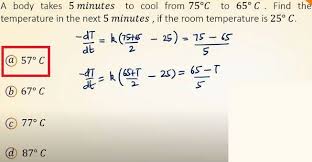 A body takes 5 minutes to cool from 75°C to 65°C. Find the
temperature in the next 5 minutes, if the room temperature is 25°C.
-dT/dt = k(75+65/2 - 25) = 75 - 65/5
ⓐ 57°C
-dT/dt = k(65+T/2 - 25) = 65 - T/5
ⓑ 67°C
ⓒ 77°C
ⓓ 87°C